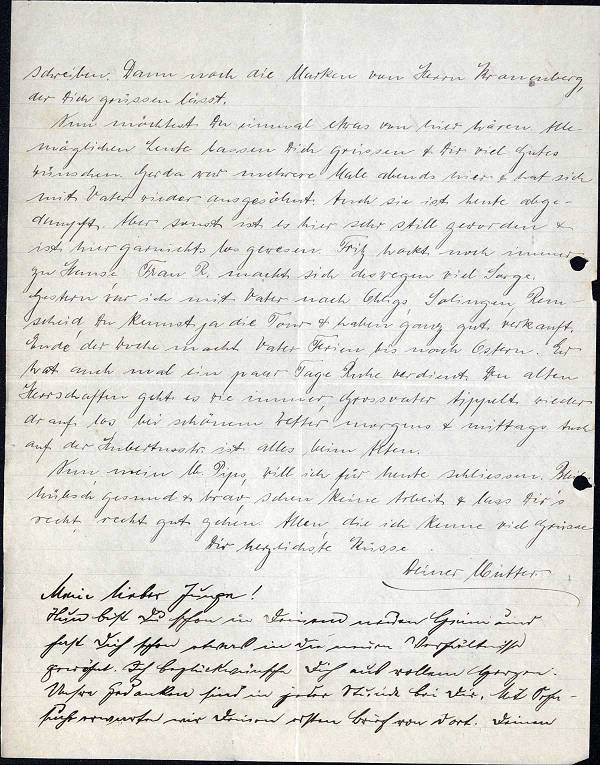 schreiben. Dann noch die Marken von Herrn Kranenberg,
der Dich grüssen lässt.
Nun möchtest Du einmal etwas von hier hören. Alle
möglichen Leute lassen Dich grüssen & Dir viel Gutes
wünschen. Gerda war mehrere Male abends hier & hat sich
mit Vater wieder ausgesöhnt. Auch sie ist heute abge-
dampft. Aber sonst ist es hier sehr still geworden &
ist hier garnichts los gewesen. Fritz hockt noch immer
zu Hause. Frau R. macht sich deswegen viel Sorge.
Gestern war ich mit Vater nach Ohligs, Solingen, Rem-
scheid, Du kennst ja die Tour & haben ganz gut verkauft.
Ende der Woche macht Vater Ferien bis nach Ostern. Er
hat auch mal ein paar Tage Ruhe verdient. Den alten
Herrschaften geht es wie immer, Grossvater tippelt wieder
drauf los bei schönem Wetter morgens & mittags. Auch
auf der Hubertusstr. ist alles beim Alten.
Nun mein lb. Pips, will ich für heute schliessen. Bleib
hübsch gesund & brav, scheu keine Arbeit & lass Dir's
recht, recht gut gehen. Allen, die ich kenne viel Grüsse
Dir herzlichste Küsse
Deiner Mutter.
Mein lieber Junge!
Nun bist Du schon in Deinem neuen Heim und
hast Dich schon etwas in die neuen Verhältnisse
gewöhnt. Ich beglückwünsche Dich aus vollem Herzen.
Unsre Gedanken sind in jeder Stunde bei Dir. Mit Sehn-
sucht erwarten wir Deinen ersten Brief von dort. Deinen